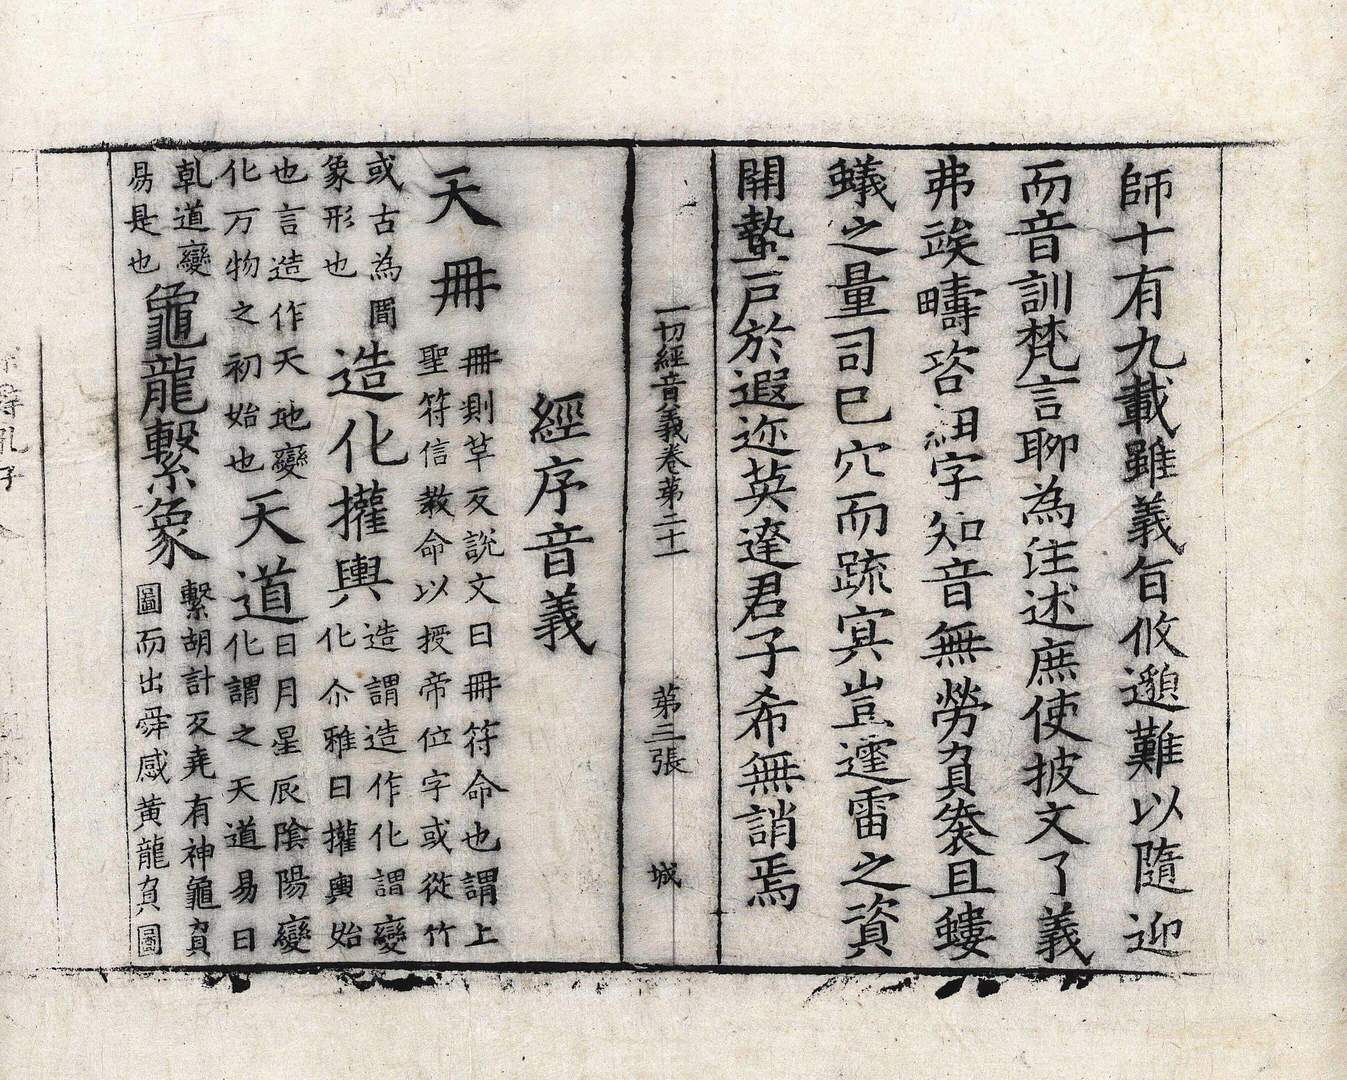 師十有九載雖義旨攸邈難以隨迎
而音訓梵言聊為注述庶使披文了義
弗竢疇咨紐字知音無勞負袠且螻
蟻之量司巳穴而䟽㝠豈䨓雷之資
開蟄戸於遐迩英達君子希無誚焉
一切經音義卷第二十 第三張 城
經序音義
天冊 冊則草反說文曰冊符命也謂上
聖符信教命以授帝位字或從竹
或古為𠕋
象形也
造化權輿 造謂造作化謂變
化尒雅曰權輿始
也言造作天地變
化万物之初始也
天道 日月星辰陰陽變
化謂之天道易曰
乹道變
易是也
龜龍繫象 繫胡計反堯有神龜負
圖而出舜感黄龍負圖